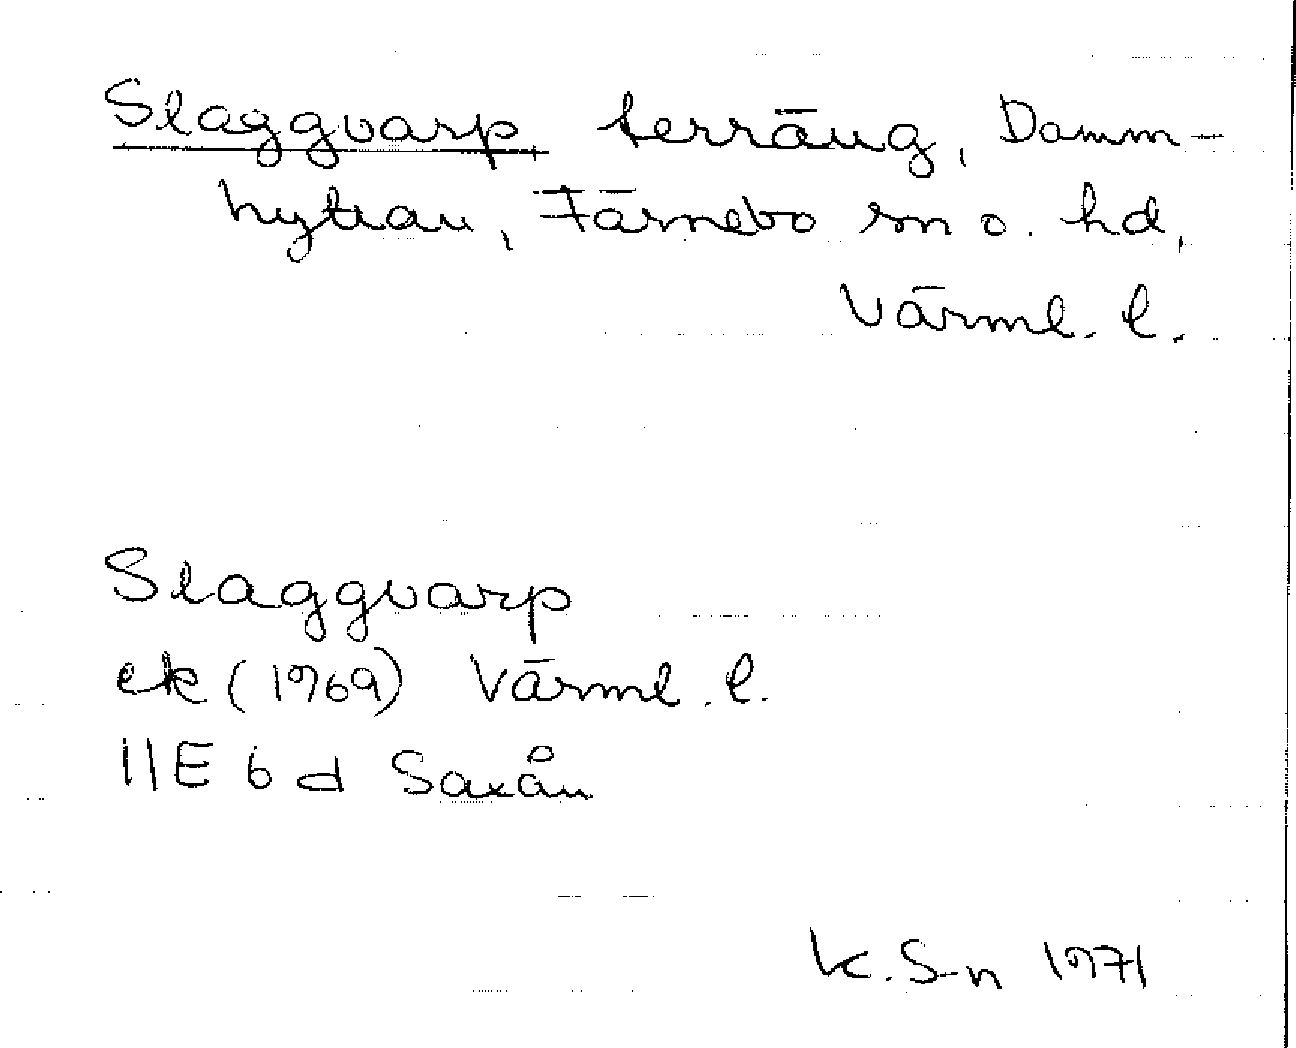 Slaggvarp terräng, Damm-
hyttan, Färnebo sn o. hd,
Värml. l.
Slaggvarp
ek (1969) Värml. l.
11E 6 d Saxån
K. S-n 1971